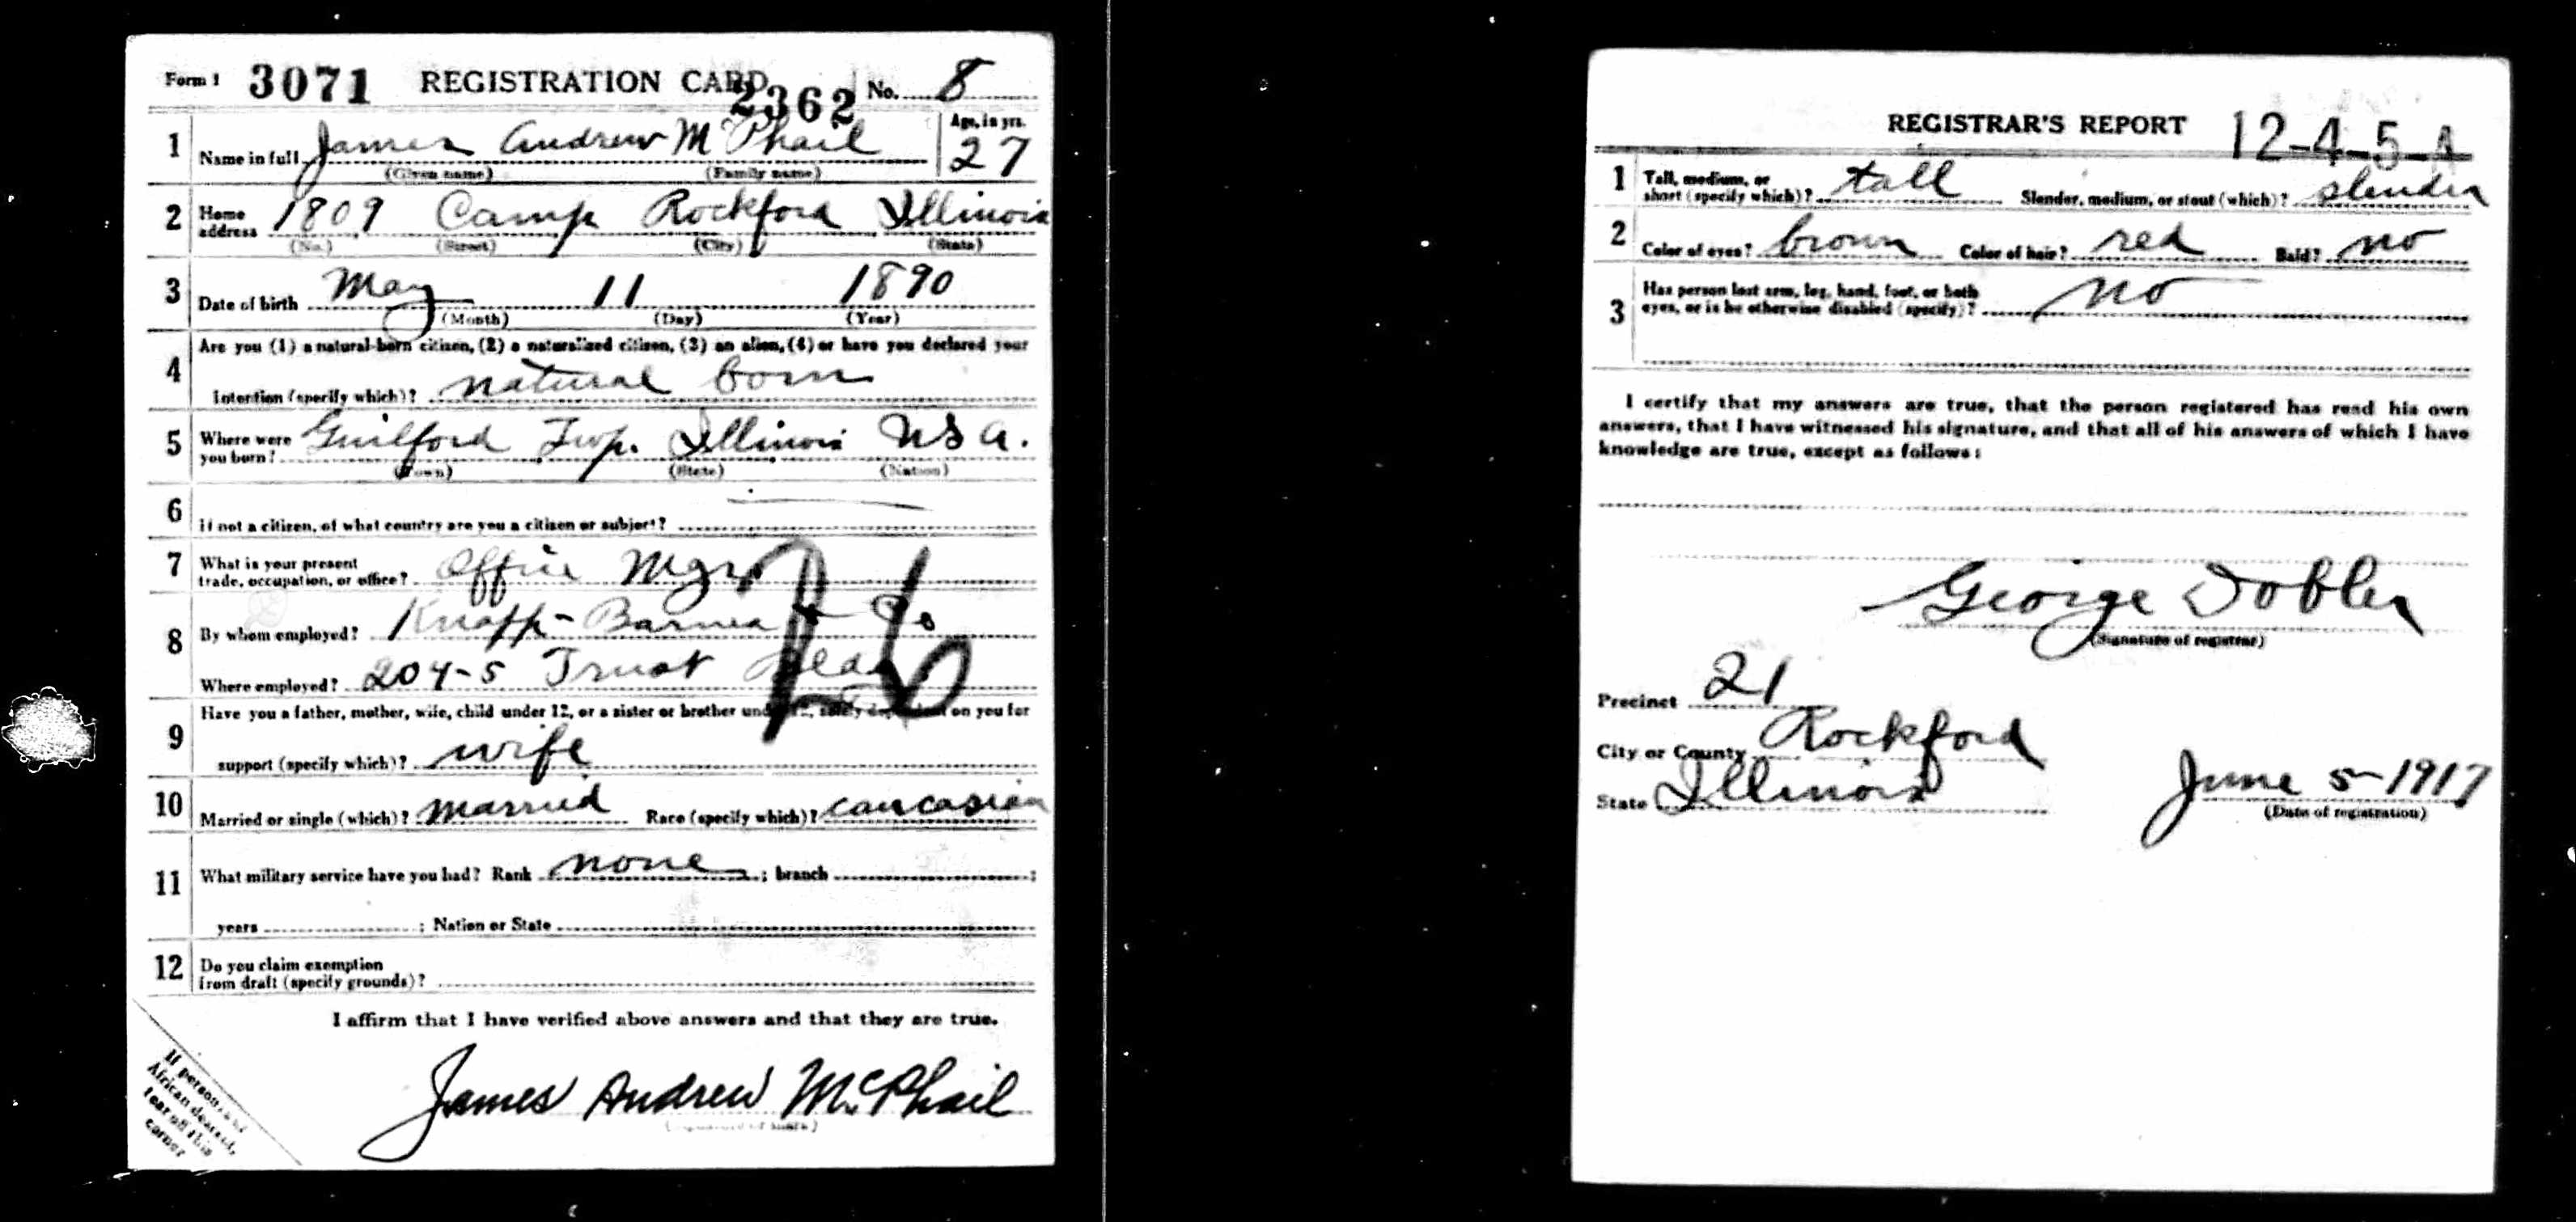 Form 1 3071 REGISTRATION CARD 2362 No. 8
1 Name in full James Andrew McPhail Age, in yrs. 27
(Given name) (Family name)
2 Home address 1809 Camp Rockford Illinois
(No.) (Street) (City) (State)
3 Date of birth May 11 1890
(Month) (Day) (Year)
4 Are you (1) a natural-born citizen, (2) a naturalized citizen, (3) an alien, (4) or have you declared your
intention (specify which)? natural born
5 Where were you born? Guilford Twp. Illinois USA.
(Town) (State) (Nation)
6 If not a citizen, of what country are you a citizen or subject?
7 What is your present trade, occupation, or office? Office Mgr
8 By whom employed? Knapp-Barnes + Co
Where employed? 204-5 Trust Bldg
9 Have you a father, mother, wife, child under 12, or a sister or brother under 12, solely dependent on you for
support (specify which)? wife
10 Married or single (which)? married Race (specify which)? caucasian
11 What military service have you had? Rank none ; branch ;
years ; Nation or State
12 Do you claim exemption
from draft (specify grounds)?
I affirm that I have verified above answers and that they are true.
James Andrew McPhail
If person is of
African descent,
tear off this
corner
REGISTRAR'S REPORT 12-4-5-A
1 Tall, medium, or
short (specify which)? tall Slender, medium, or stout (which)? slender
2 Color of eyes? brown Color of hair? red Bald? no
3 Has person lost arm, leg, hand, foot, or both
eyes, or is he otherwise disabled (specify)? no
I certify that my answers are true, that the person registered has read his own
answers, that I have witnessed his signature, and that all of his answers of which I have
knowledge are true, except as follows:
George Dobler
(Signature of registrar)
Precinct 21
City or County Rockford
State Illinois June 5-1917
(Date of registration)